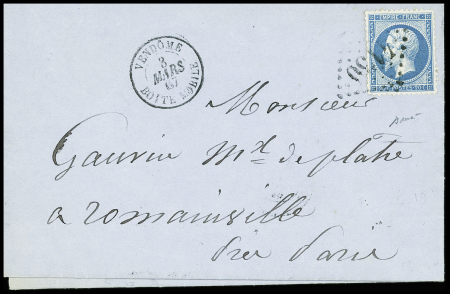 EMPIRE FRANC
VENDÔME
3
MARS
67
BOITE MOBILE
Monsieur
Gauvin Md de platre
a romainville
Près Paris